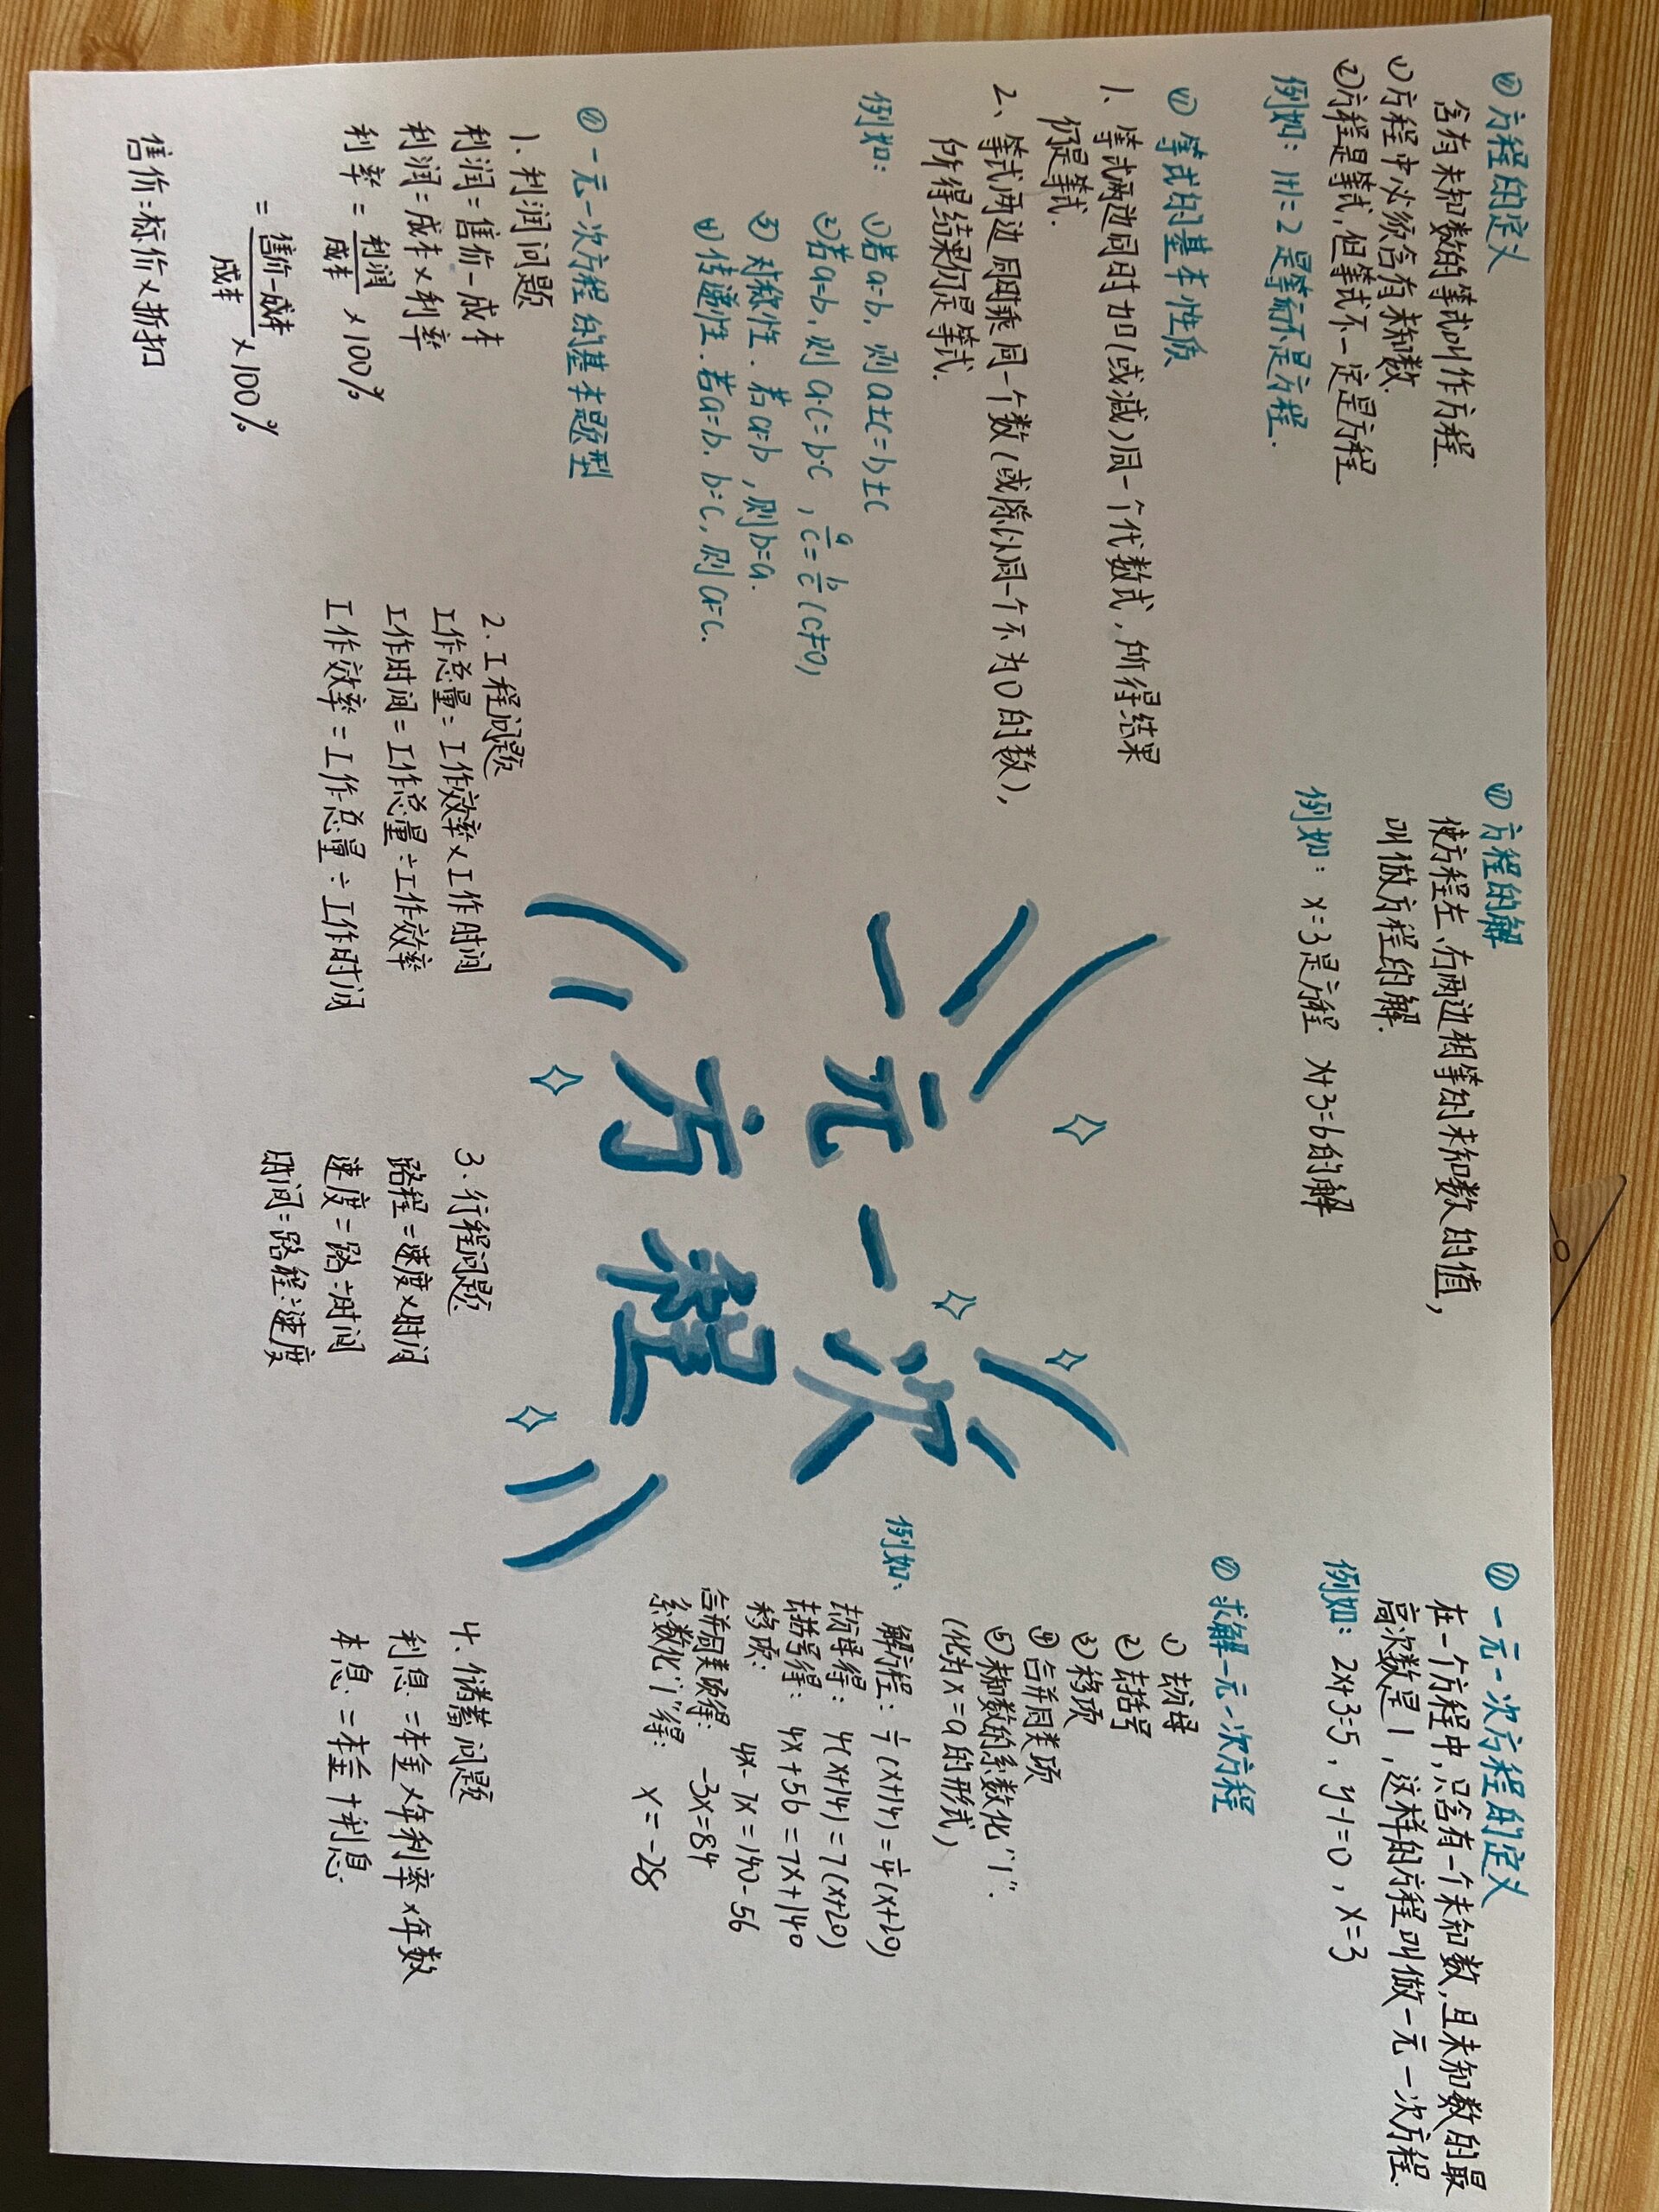 ① 方程的定义
含有未知数的等式叫作方程.
①方程中必须含有未知数.
②方程是等式,但等式不一定是方程.
例如: 1+1=2 是等式不是方程.
② 方程的解
使方程左、右两边相等的未知数的值,
叫做方程的解.
例如: x=3是方程 x+3=6的解
③ 一元一次方程的定义
在一个方程中,只含有一个未知数,且未知数的最
高次数是1,这样的方程叫做一元一次方程.
例如: 2x+3=5, y-1=0, x=3
④ 等式的基本性质
1、等式两边同时加(或减)同一个代数式,所得结果
仍是等式.
2、等式两边同时乘同一个数(或除以同一个不为0的数),
所得结果仍是等式.
例如: ①若a=b,则a±c=b±c
②若a=b,则a·c=b·c, a/c=b/c(c≠0)
③对称性.若a=b,则b=a.
④传递性.若a=b.b=c,则a=c.
一元一次
方程
⑤ 求解一元一次方程
① 去分母
② 去括号
③ 移项
④ 合并同类项
⑤ 未知数的系数化"1".
(化为x=a的形式)
例如:
解方程: 1/7(x+14)=1/4(x+20)
去分母得: 4(x+14)=7(x+20)
去括号得: 4x+56=7x+140
移项: 4x-7x=140-56
合并同类项得: -3x=84
系数化"1"得: x=-28
⑥ 一元一次方程的基本题型
1.利润问题
利润=售价-成本
利润=成本×利率
利率=利润/成本×100%
=售价-成本/成本×100%
售价=标价×折扣
2.工程问题
工作总量=工作效率×工作时间
工作时间=工作总量÷工作效率
工作效率=工作总量÷工作时间
3.行程问题
路程=速度×时间
速度=路÷时间
时间=路程÷速度
4、储蓄问题
利息=本金×年利率×年数
本息=本金+利息.